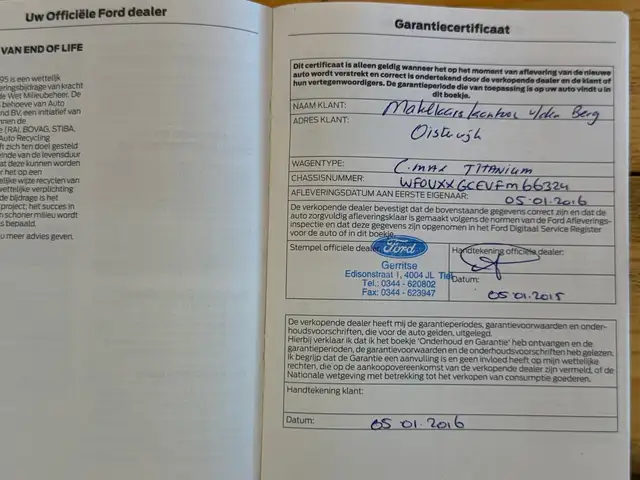 Uw Officiële Ford dealer
VAN END OF LIFE
95 is een wettelijk
eringsbijdrage van kracht
de Wet Milieubeheer. De
behoeve van Auto
nd BV, een initiatief van
nnen de
(RAI, BOVAG, STIBA,
Auto Recycling
ft zich ten doel gesteld
einde van de levensduur
at deze kunnen worden
r het op een
elijke wijze recyclen van
wettelijke verplichting
de bijdrage is het
project; het succes in
schoner milieu wordt
s bepaald.
u meer advies geven.
Garantiecertificaat
Dit certificaat is alleen geldig wanneer het op het moment van aflevering van de nieuwe
auto wordt verstrekt en correct is ondertekend door de verkopende dealer en de klant of
hun vertegenwoordigers. De garantieperiode die van toepassing is op uw auto vindt u in
dit boekje.
NAAM KLANT: Makelaarskantoor v/den Berg
ADRES KLANT: Oisterwijk
WAGENTYPE: C-MAX TITANIUM
CHASSISNUMMER: WF0VXXGCEVFM66324
AFLEVERINGSDATUM AAN EERSTE EIGENAAR: 05-01-2016
De verkopende dealer bevestigt dat de bovenstaande gegevens correct zijn en dat de
auto zorgvuldig afleveringsklaar is gemaakt volgens de normen van de Ford Afleverings-
inspectie en dat deze gegevens zijn opgenomen in het Ford Digitaal Service Register
voor de auto of in dit boekje.
Stempel officiële dealer: Ford Handtekening officiële dealer:
Gerritse
Edisonstraat 1, 4004 JL Tiel
Tel.: 0344 - 620802
Fax: 0344 - 623947
Datum:
05-01-2015
De verkopende dealer heeft mij de garantieperiodes, garantievoorwaarden en onder-
houdsvoorschriften, die voor de auto gelden, uitgelegd.
Hierbij verklaar ik dat ik het boekje 'Onderhoud en Garantie' heb ontvangen en de
garantieperioden, de garantievoorwaarden en de onderhoudsvoorschriften heb gelezen.
Ik begrijp dat de Garantie een aanvulling is en geen invloed heeft op mijn wettelijke
rechten, die op de aankoopovereenkomst van de verkopende dealer zijn vermeld, of de
Nationale wetgeving met betrekking tot het verkopen van consumptie goederen.
Handtekening klant:
Datum: 05-01-2016